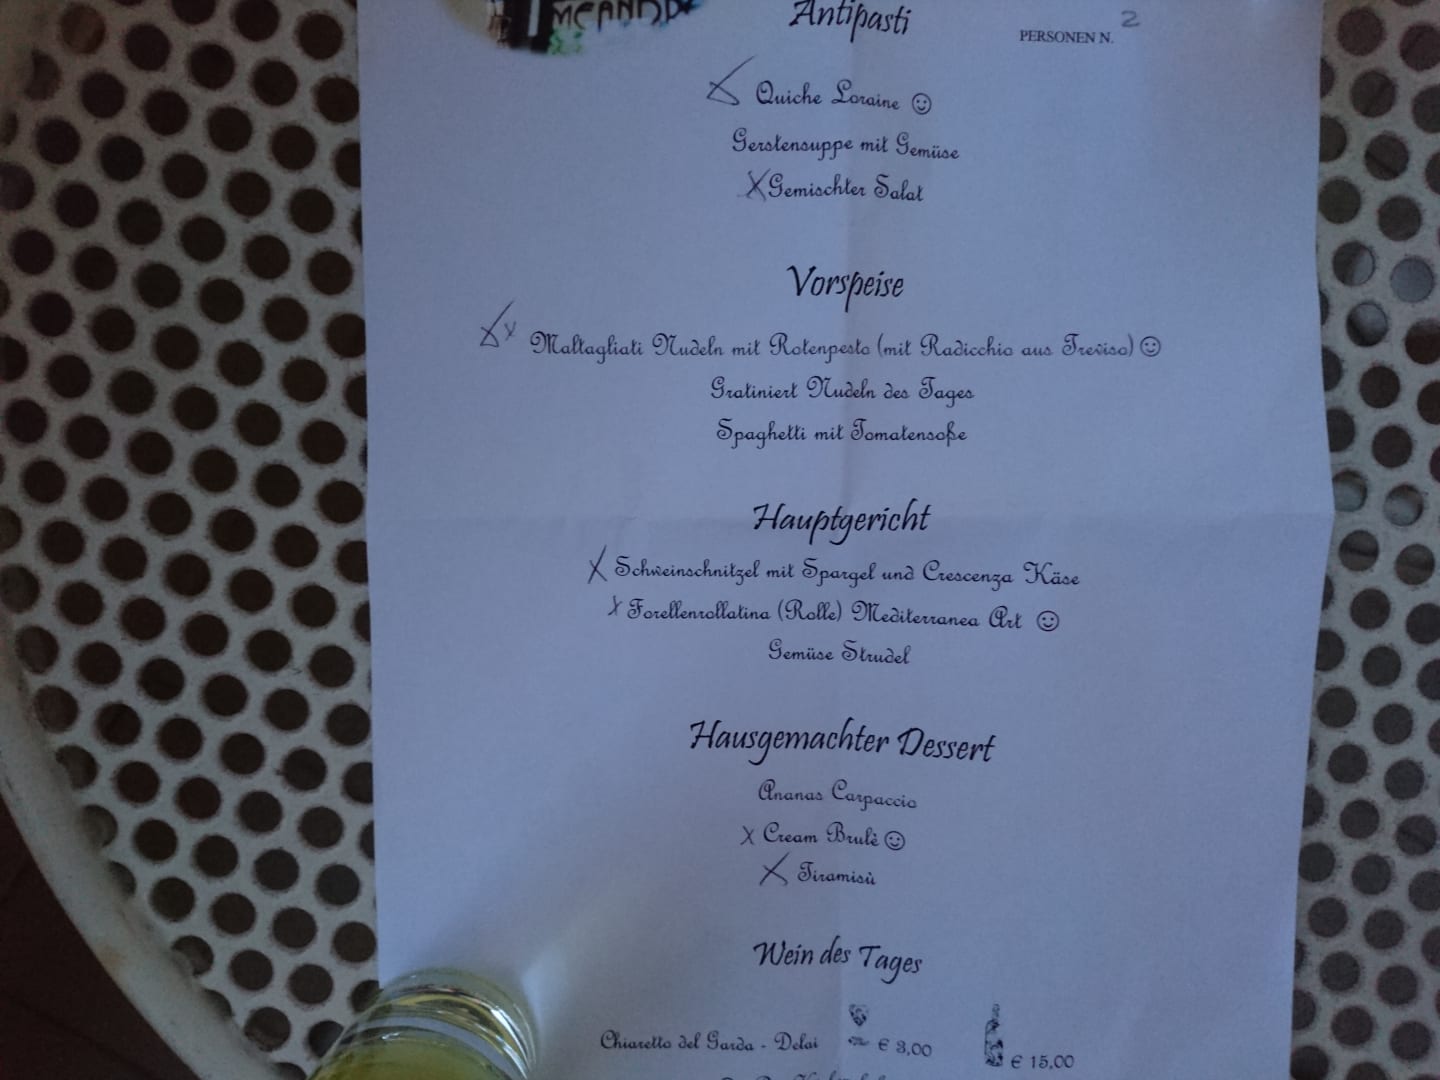 Antipasti
PERSONEN N. 2
Quiche Loraine ☺
Gerstensuppe mit Gemüse
X Gemischter Salat
Vorspeise
X Maltagliati Nudeln mit Rotenpesto (mit Radicchio aus Treviso) ☺
Gratiniert Nudeln des Tages
Spaghetti mit Tomatensoße
Hauptgericht
X Schweinschnitzel mit Spargel und Crescenza Käse
X Forellenrollatina (Rolle) Mediterranea Art ☺
Gemüse Strudel
Hausgemachter Dessert
Ananas Carpaccio
X Cream Brulè ☺
X Tiramisù
Wein des Tages
Chiaretto del Garda - Delai € 3,00 € 15,00